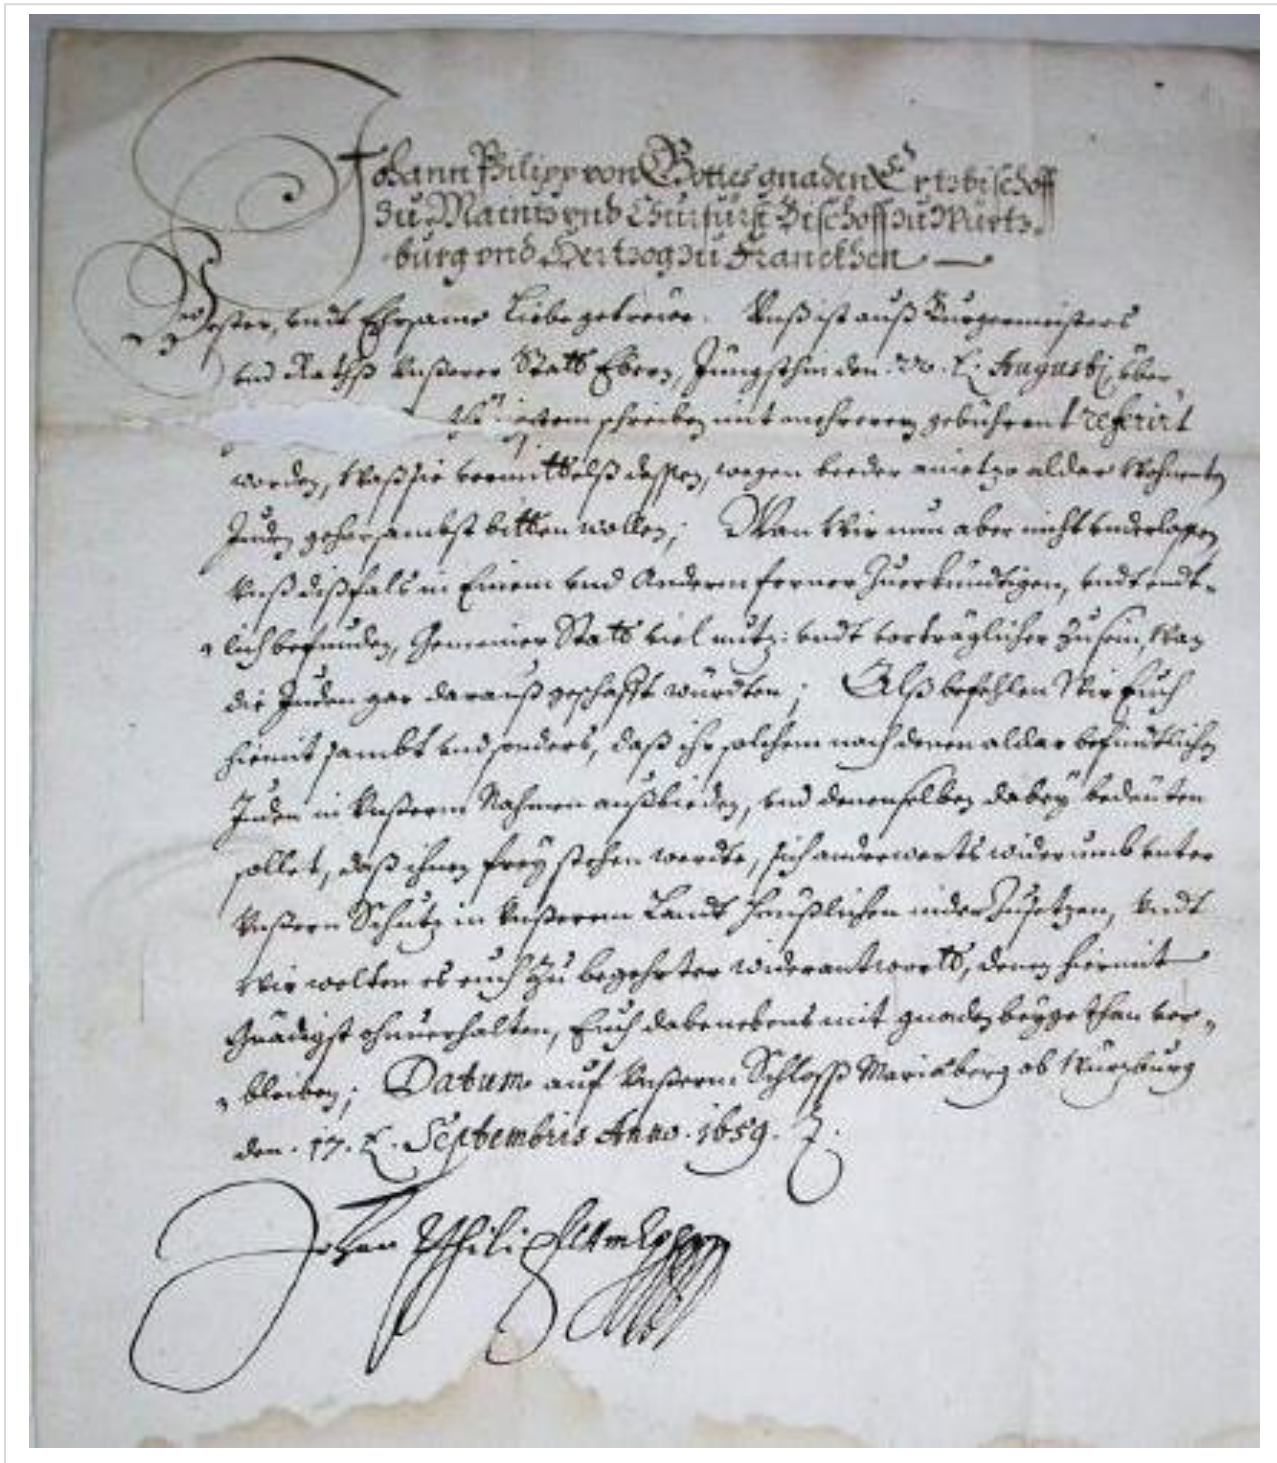 Johann Philipp von Gottes gnaden Ertzbischoff
zu Maintz vnd Churfürst Bischoff zu Würtz-
burg vnd Hertzog zu Franckhen
Vester, vndt Ehrsame Liebe getrewe. Vnß ist auß Burgermeisters
vnd Raths Vnßerer Statt Ebern, Jüngsthin den 22. t. Augusti über-
schreiben mit mehrerem gebührent referirt
worden, Waß sie vermittelß dessen, wegen beeder anietzo aldar Wohnenten
Juden gehorsambst bitten wollen; Wan Wir nun aber nicht vnderlaßen
Vnß dißfals in Einem vnd Anderm ferner Zuerkündtigen, vndt endt-
lich befunden, Gemeiner Statt viel nutz: vndt vorträglicher zu sein, Wan
die Juden gar darauß geschafft würdten; Alß befehlen Wir Euch
hiemit sambt vnd sonders, daß ihr solchem nach denen aldar befindtlichen
Juden in Vnßerm Nahmen außbieden, vnd denenselben dabey bedeüten
sollet, daß ihnen frey stehen werdte, sich anderwerts widerumb vnter
Vnßern Schutz in Vnßerem Landt häußlichen nider Zusetzen, Vndt
Wir wolten es euch Zu begehrter widerantwortt, denen hiermit
Gnädigst ohnuerhalten, Euch dabenebens mit gnaden beygethan ver-
bleiben; Datum auf Vnßerm Schloß Mariæberg ob Würzburg
den 17. t. Septembris Anno. 1659.
Johan Philip